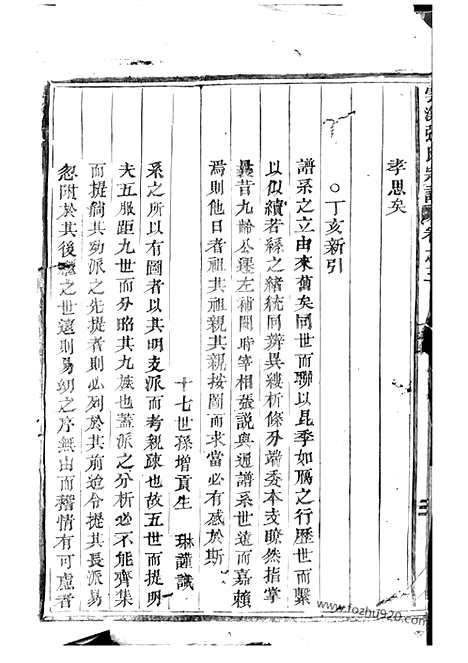 孝思矣
○丁亥新引
譜系之立由來舊矣同世而聯以昆季如鴈之行歷世而繫
以似續若絲之緒統同辨異縷析條分端委本支瞭然指掌
曩昔九齡公歷左補闕時宰相張說與通譜系世遠而嘉賴
焉則他日者祖其祖親其親按圖而求當必有感於斯
十七世孫增貢生 琳謹識
系之所以有圖者以其明支派而考親疎也故五世而提明
夫五服距九世而分晰其九族也蓋派之分析必不能齊集
而提倘其幼派之先提者則必列於其前迨令提其長派易
忽附於其後歷之世遠則易幼之序無由而稽情有可慮者
www.fozhu920.com